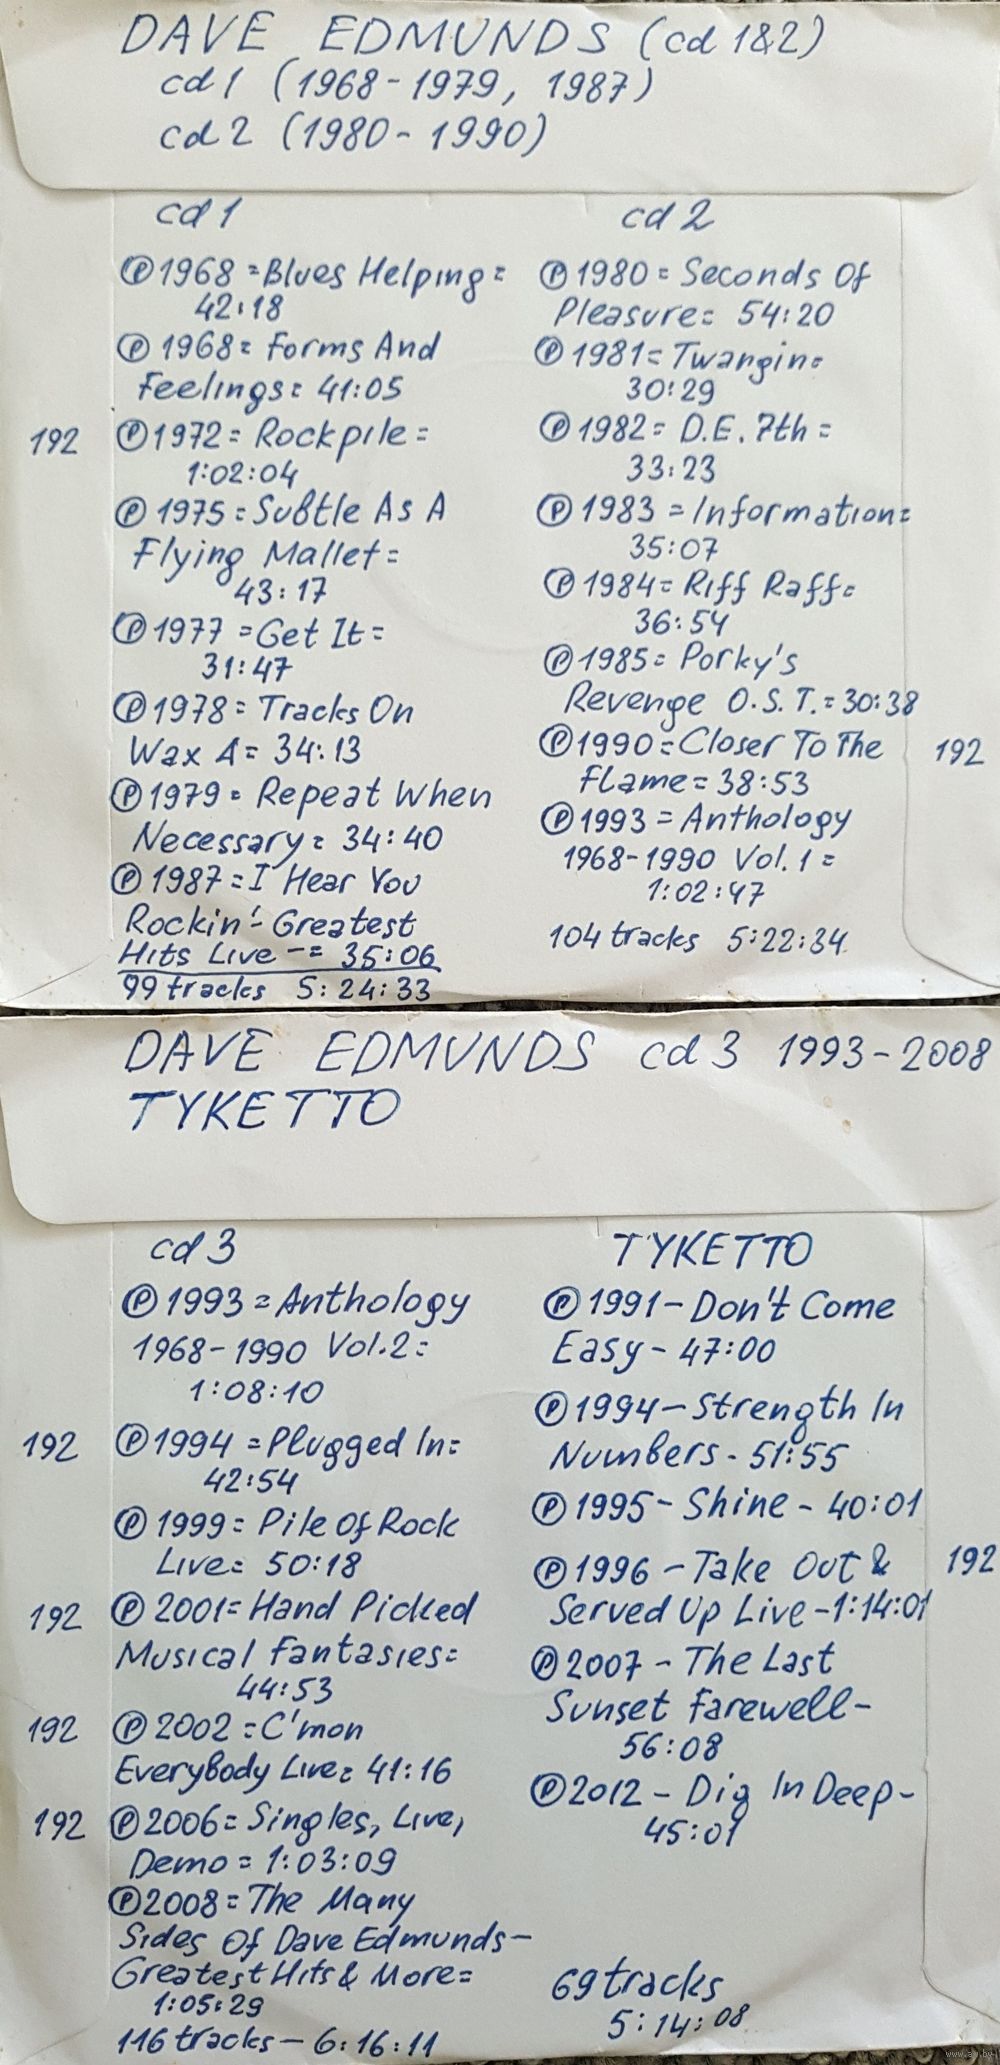 DAVE EDMUNDS (cd 1&2)
cd 1 (1968-1979, 1987)
cd 2 (1980-1990)
cd 1
Ⓟ 1968 = Blues Helping =
42:18
Ⓟ 1968 = Forms And
Feelings = 41:05
192 Ⓟ 1972 = Rockpile =
1:02:04
Ⓟ 1975 = Subtle As A
Flying Mallet =
43:17
Ⓟ 1977 = Get It =
31:47
Ⓟ 1978 = Tracks On
Wax 4 = 34:13
Ⓟ 1979 = Repeat When
Necessary = 34:40
Ⓟ 1987 = I Hear You
Rockin' - Greatest
Hits Live - = 35:06
99 tracks 5:24:33
cd 2
Ⓟ 1980 = Seconds Of
Pleasure = 54:20
Ⓟ 1981 = Twangin =
30:29
Ⓟ 1982 = D.E. 7th =
33:23
Ⓟ 1983 = Information =
35:07
Ⓟ 1984 = Riff Raff =
36:54
Ⓟ 1985 = Porky's
Revenge O.S.T. = 30:38
Ⓟ 1990 = Closer To The 192
Flame = 38:53
Ⓟ 1993 = Anthology
1968-1990 Vol. 1 =
1:02:47
104 tracks 5:22:34
DAVE EDMUNDS cd 3 1993-2008
TYKETTO
cd 3
Ⓟ 1993 = Anthology
1968-1990 Vol. 2 =
1:08:10
192 Ⓟ 1994 = Plugged In =
42:54
Ⓟ 1999 = Pile Of Rock
Live = 50:18
192 Ⓟ 2001 = Hand Picked
Musical Fantasies =
44:53
192 Ⓟ 2002 = C'mon
Everybody Live = 41:16
192 Ⓟ 2006 = Singles, Live,
Demo = 1:03:09
Ⓟ 2008 = The Many
Sides Of Dave Edmunds -
Greatest Hits & More =
1:05:29
116 tracks - 6:16:11
TYKETTO
Ⓟ 1991 - Don't Come
Easy - 47:00
Ⓟ 1994 - Strength In
Numbers - 51:55
Ⓟ 1995 - Shine - 40:01
Ⓟ 1996 - Take Out & 192
Served Up Live - 1:14:01
Ⓟ 2007 - The Last
Sunset Farewell -
56:08
Ⓟ 2012 - Dig In Deep -
45:01
69 tracks
5:14:08
www.ay.by